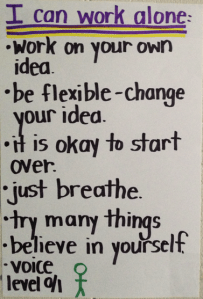 I can work alone:
•work on your own
idea.
•be flexible-change
your idea.
•it is okay to start
over.
•just breathe.
•try many things
•believe in yourself.
•voice
level 0/1